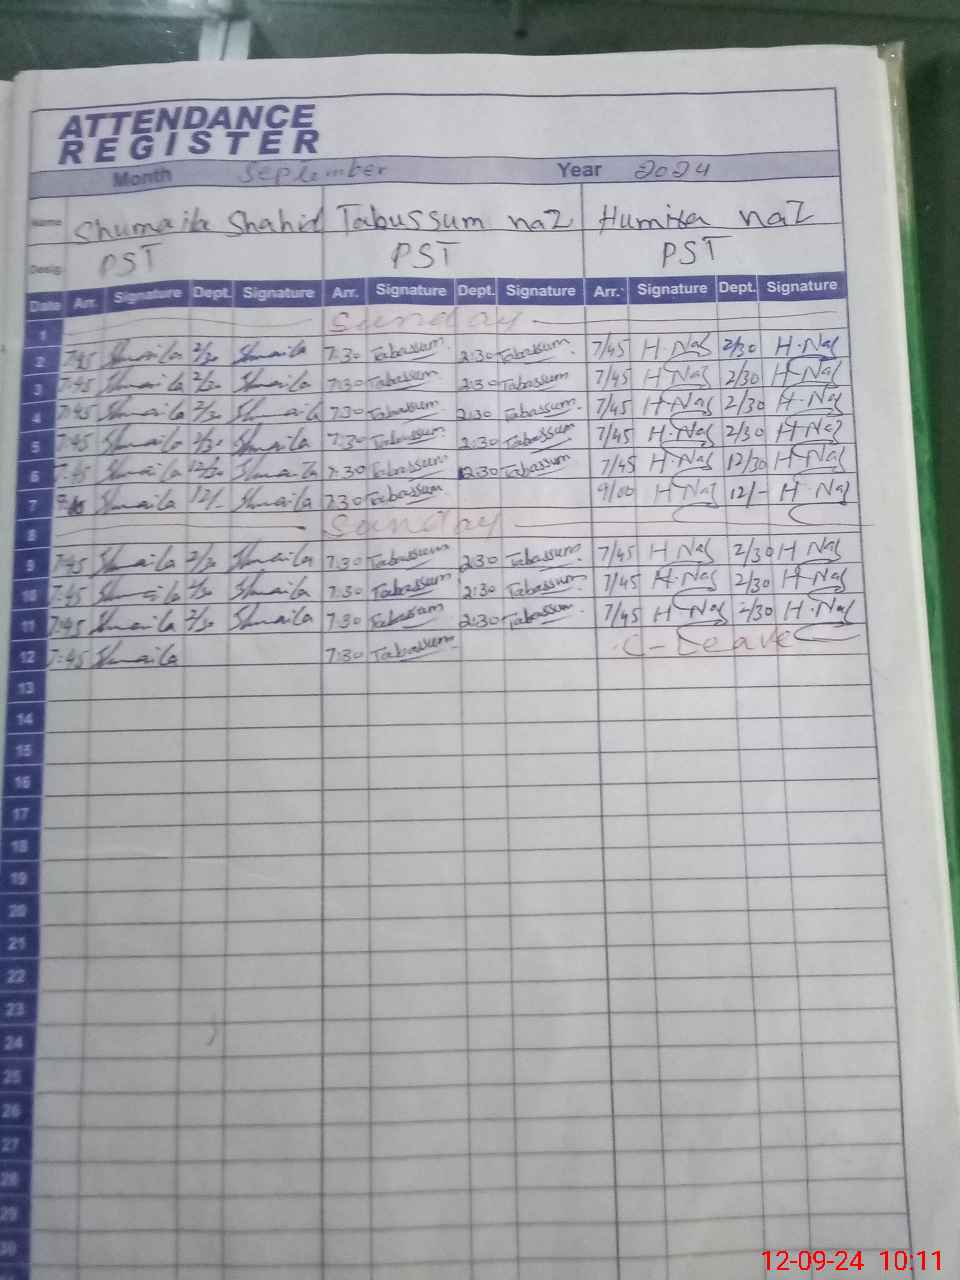 ATTENDANCE
REGISTER
Month September Year 2024
Name Shumaila Shahid Tabussum naz Humira naz
Desig PST PST PST
Date Arr. Signature Dept. Signature Arr. Signature Dept. Signature Arr. Signature Dept. Signature
1 Sunday
2 7:45 Shumaila 2/30 Shumaila 7:30 Tabassum 2:30 Tabassum. 7/45 H.Naz 2/30 H.Naz
3 7:45 Shumaila 2/30 Shumaila 7:30 Tabassum 2:30 Tabassum 7/45 H Naz 2/30 H.Naz
4 7:45 Shumaila 2/30 Shumaila 7:30 Tabassum 2:30 Tabassum. 7/45 H.Naz 2/30 H.Naz
5 7:45 Shumaila 2/30 Shumaila 7:30 Tabassum 2:30 Tabassum 7/45 H.Naz 2/30 H.Naz
6 7:45 Shumaila 12/30 Shumaila 7:30 Tabassum 12:30 Tabassum 7/45 H.Naz 12/30 H.Naz
7 Shumaila 12/- Shumaila 7:30 Tabassum 9/00 H Naz 12/- H.Naz
8 Sunday
9 7:45 Shumaila 2/30 Shumaila 7:30 Tabassum 2:30 Tabassum 7/45 H Naz 2/30 H Naz
10 7:45 Shumaila 2/30 Shumaila 7:30 Tabassum 2:30 Tabassum 7/45 H.Naz 2/30 H.Naz
11 7:45 Shumaila 2/30 Shumaila 7:30 Tabassum 2:30 Tabassum 7/45 H Naz 2/30 H.Naz
12 7:45 Shumaila 7:30 Tabassum C-Leave
13
14
15
16
17
18
19
20
21
22
23
24
25
26
27
28
29
30
12-09-24 10:11